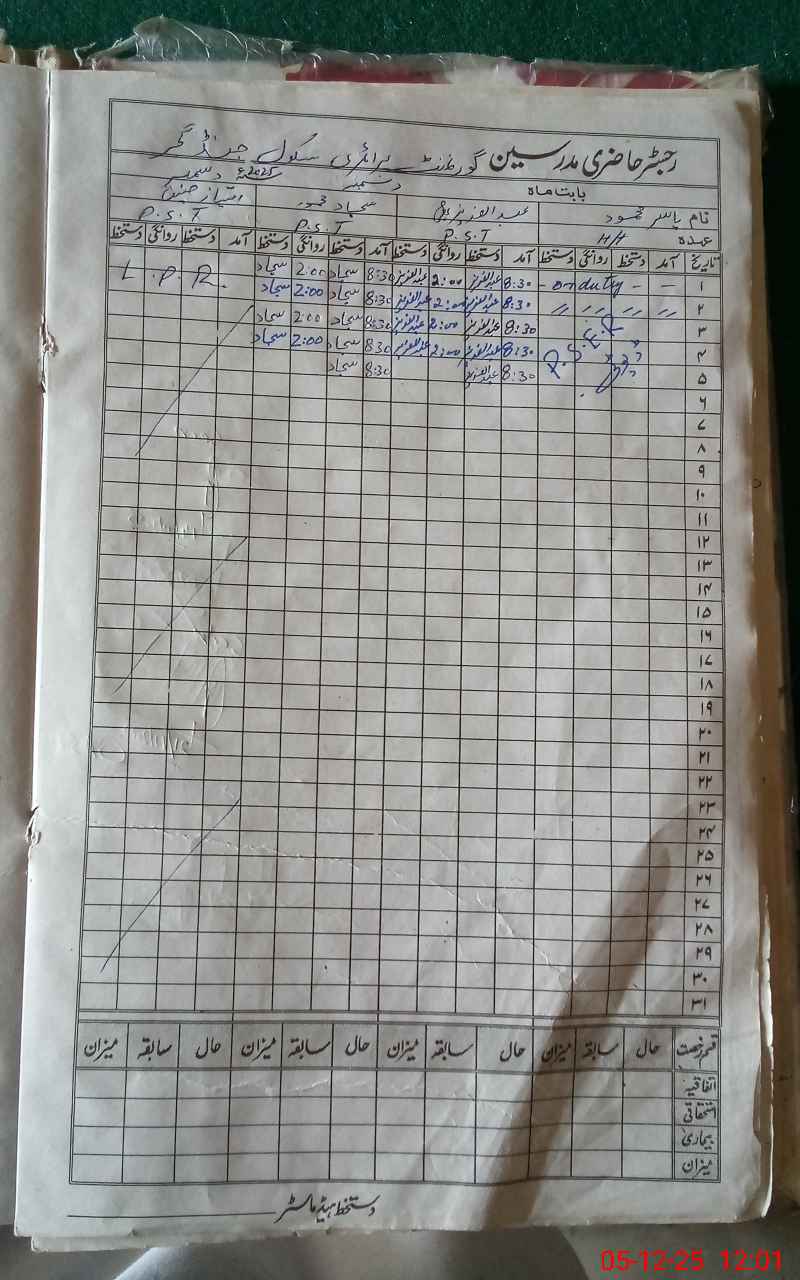 رجسٹر حاضری مدرسین گورنمنٹ پرائمری سکول جنڈ گجر
بابت ماہ دسمبر 2025ء دسمبر
نام یاسر محمود عبدالعزیز سجاد محمود امتیاز حسین
عہدہ H/T P.S.T P.S.T P.S.T
تاریخ آمد دستخط روانگی دستخط آمد دستخط روانگی دستخط آمد دستخط روانگی دستخط آمد دستخط روانگی دستخط
۱ - - on duty - 8:30 عبدالعزیز 2:00 عبدالعزیز 8:30 سجاد 2:00 سجاد L.P.R.
۲ 〃 〃 〃 〃 8:30 عبدالعزیز 2:00 عبدالعزیز 8:30 سجاد 2:00 سجاد
۳ P.S.E.R 8:30 عبدالعزیز 2:00 عبدالعزیز 8:30 سجاد 2:00 سجاد
۴ 8:30 عبدالعزیز 2:00 عبدالعزیز 8:30 سجاد 2:00 سجاد
۵ 8:30 عبدالعزیز 8:30 سجاد
۶
۷
۸
۹
۱۰
۱۱
۱۲
۱۳
۱۴
۱۵
۱۶
۱۷
۱۸
۱۹
۲۰
۲۱
۲۲
۲۳
۲۴
۲۵
۲۶
۲۷
۲۸
۲۹
۳۰
۳۱
قسم رخصت حال سابقہ میزان حال سابقہ میزان حال سابقہ میزان حال سابقہ میزان
اتفاقیہ
استحقاقی
بیماری
میزان
دستخط ہیڈ ماسٹر
05-12-25 12:01